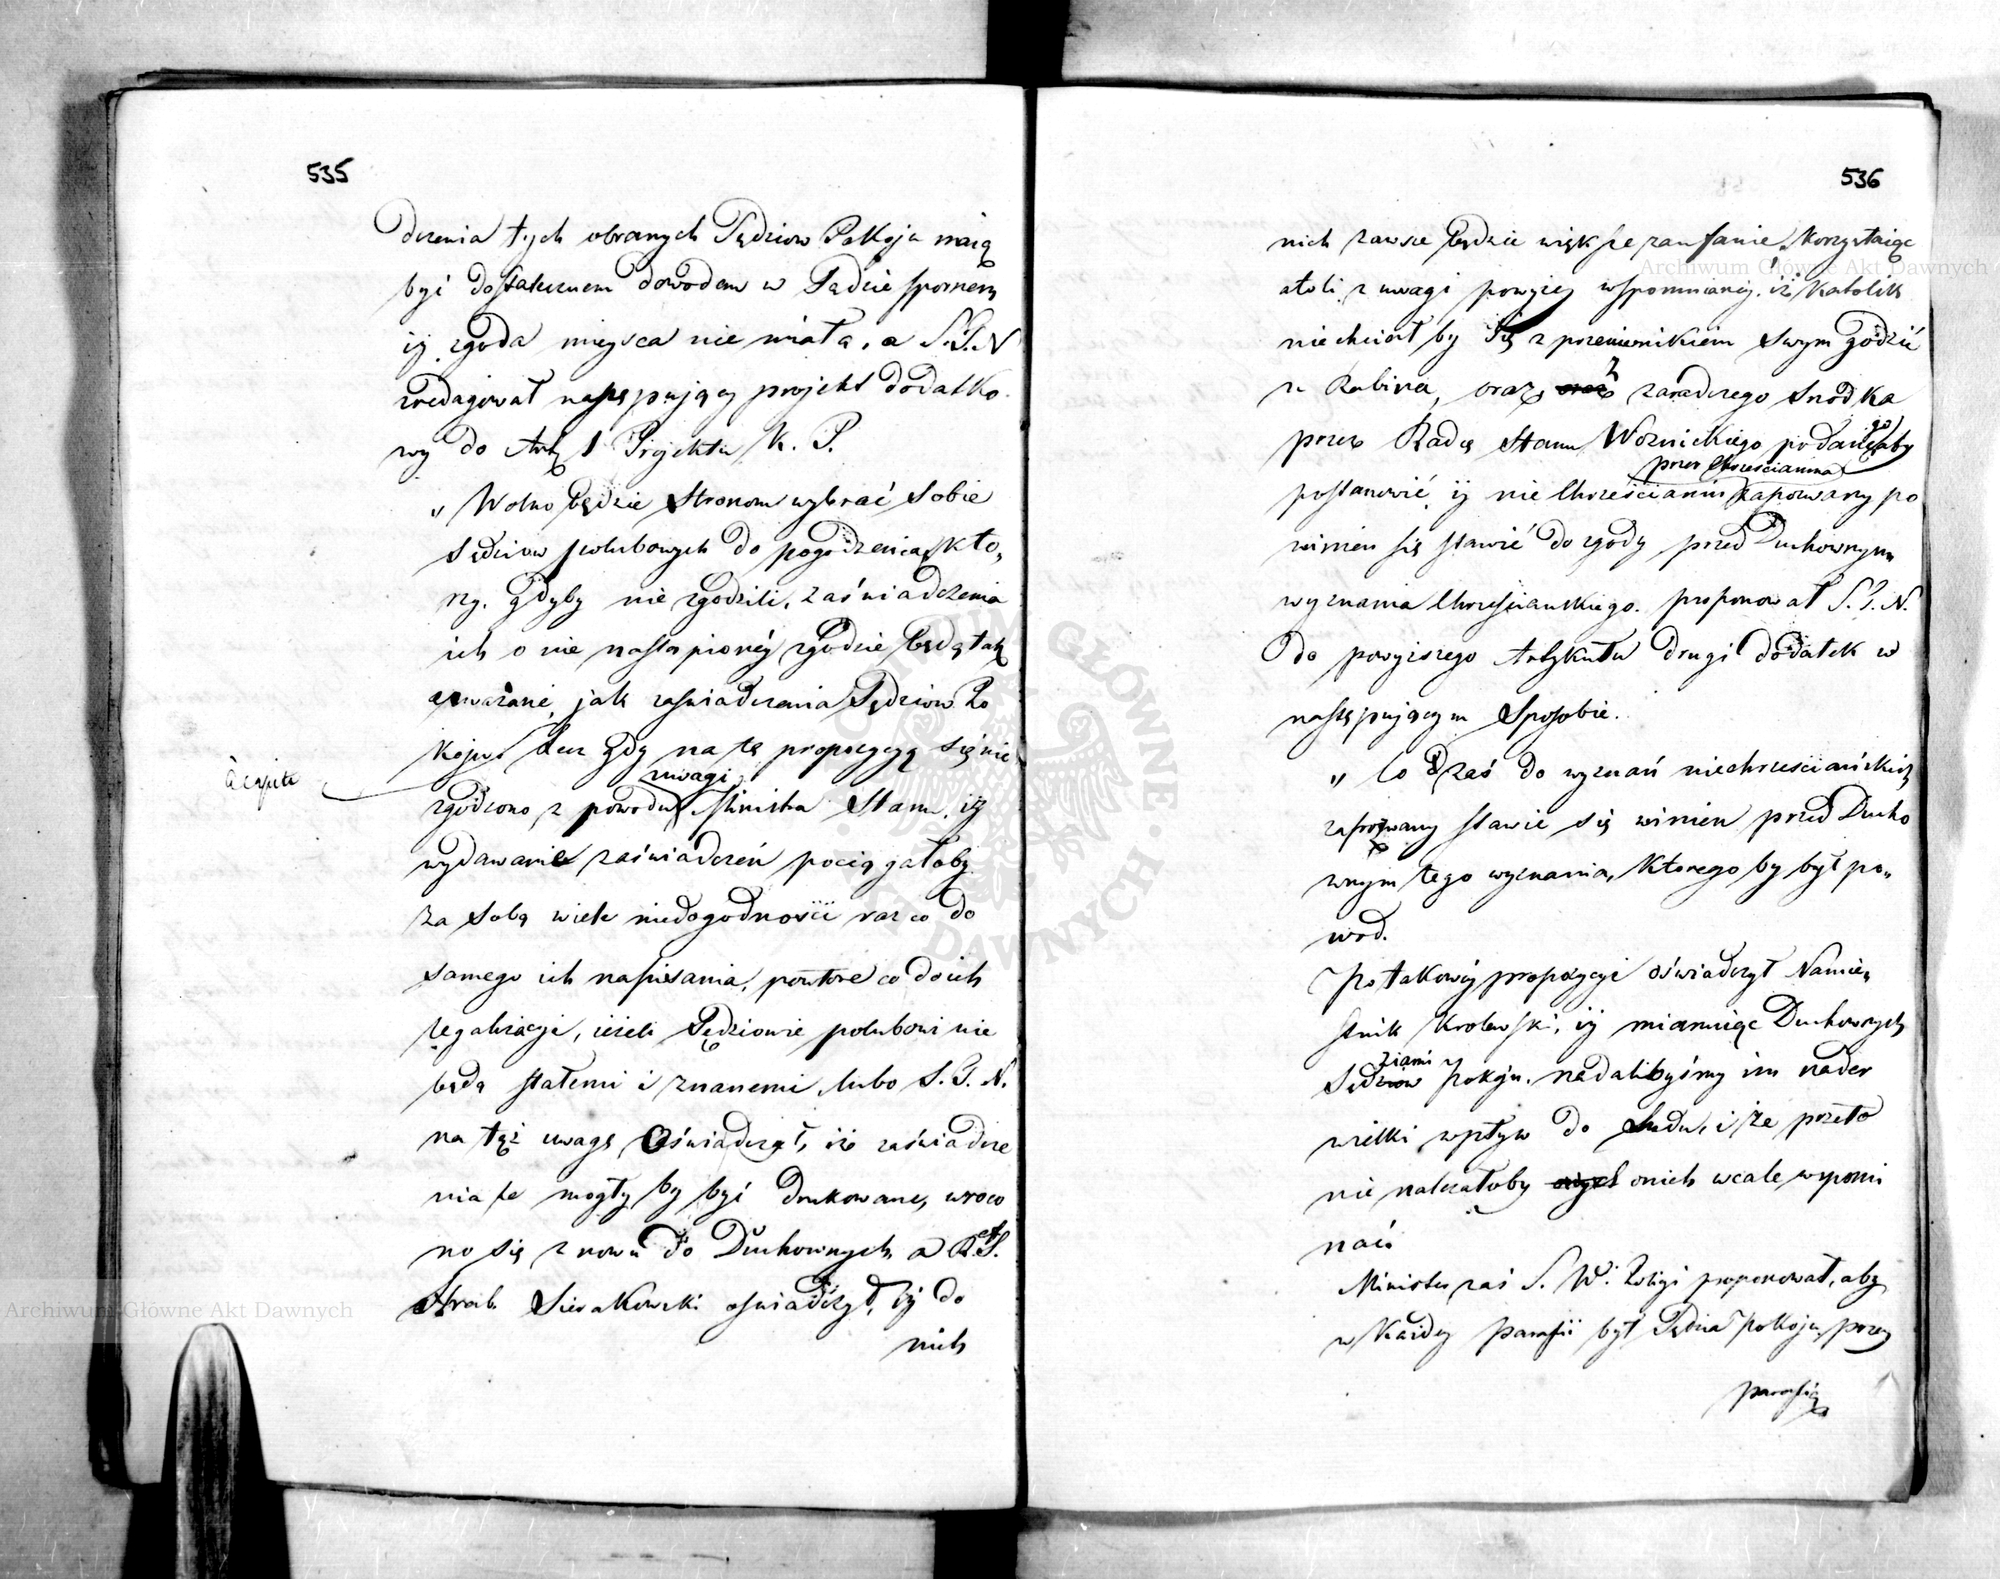 535
dczenia tych obranych Sędziow Pokoju maią
być dostatecznem dowodem w Sądzie spornem
iż zgoda mieysca nie miała, a S.J.N
zredagował następuiący projekt dodatko-
wy do Art. 1 Projektu K. P.
„ Wolno będzie Stronom wybrać sobie
Sędziow polubowych do pogodzenia, kto„
rzy, gdyby nie zgodzili, zaświadczenia
ich o nie nastąpionéy zgodzie będą tak
uważane, jak zaświadczenia Sędziow Po
koju. Lecz gdy na tę propozycyą się nie
à capite
uwagi
zgodzono z powodu Ministra Stanu, iż
wydawanie zaświadczeń pociągałoby
za sobą wiele niedogodności raz co do
samego ich napisania, powtore co do ich
legalizacyi, ieżeli Sędziowie polubowi nie
będą stałemi i znanemi, lubo S. J. N.
na tęż uwagę Oświadczył, iż zaświadcze
nia te mogły by być drukowane, wroco
no się znowu do Duchownych a R. S.
Hrab. Sierakowski oświadczył, iż do
nich
536
nich zawsze będzie większe zaufanie. Korzystaiąc
atoli z uwagi powyżey wspomnianéy, iż Katolik
niechciał by się z przeciwnikiem swym godzić
u Rabina, oraz z zaradczego Srodka
przez Radcę Stanu Woznickiego podanego aby
przez Chrześcianina
postanowić, iż nie Chrześcianin zapozwany po
winien się stawić do zgody przed Duchownym
wyznania Chrześcianskiego. proponował S. J. N.
do powyższego Artykułu drugi dodatek w
następuiącym Sposobie.
„ Co zaś do wyznań niechrześciańskich
zapozwany stawić się winien przed Ducho
wnym tego wyznania, którego by był po„
wod.
Po takowéy propozycyi oświadczył Namie„
stnik Krolewski, iż mianuiąc Duchownych
ziami
Sędziow pokoju, nadalibyśmy im nader
wielki wpływ do Ludu, i że przeto
nie należałoby onich wcale wspomi
nać.
Minister zaś S. W. i Policyi proponował, aby
w Każdey parafii był Sędzia Pokoju, przez
parafią